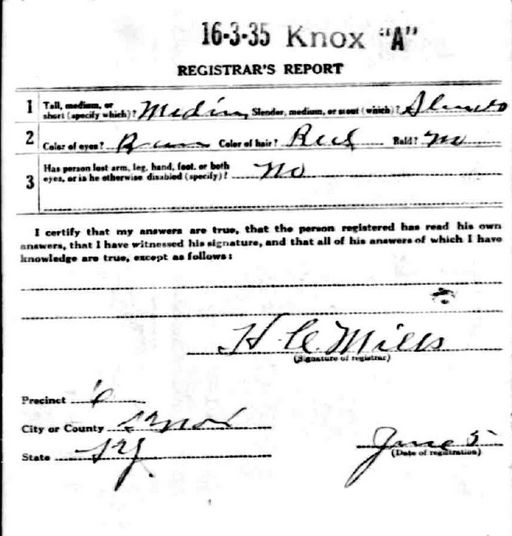 16-3-35 Knox "A"
REGISTRAR'S REPORT
1 Tall, medium, or short (specify which)? Medium Slender, medium, or stout (which)? Slender
2 Color of eyes? Color of hair? Red Bald? no
3 Has person lost arm, leg, hand, foot, or both
eyes, or is he otherwise disabled (specify)? no
I certify that my answers are true, that the person registered has read his own
answers, that I have witnessed his signature, and that all of his answers of which I have
knowledge are true, except as follows:
H C Mills
(Signature of registrar)
Precinct 6
City or County Knox
State Ky.
June 5
(Date of registration)